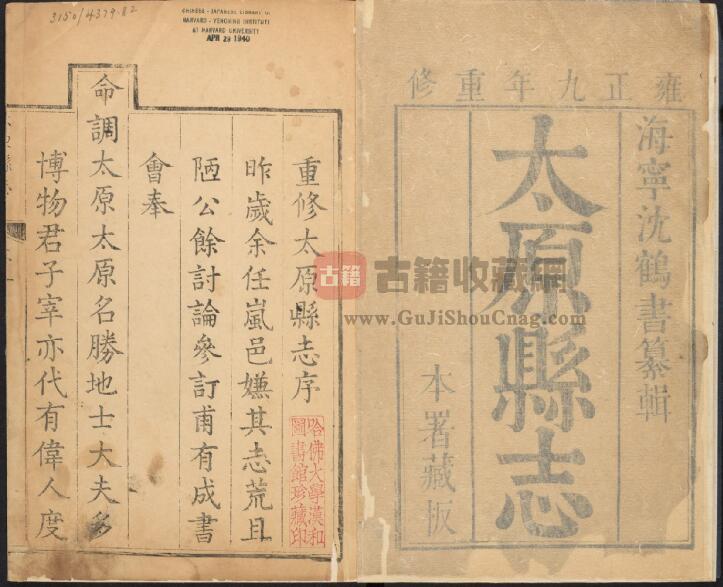 雍正九年重修
海寧沈鶴書纂輯
太原縣志
本署藏板
重修太原縣志序
昨歲余任嵐邑嫌其志荒且
陋公餘討論參訂甫有成書
會奉
命調太原太原名勝地士大夫多
博物君子宰亦代有偉人度
哈佛大學漢和
圖書館珍藏印
3150/4379.82
CHINESE - JAPANESE LIBRARY OF
HARVARD - YENCHING INSTITUTE
AT HARVARD UNIVERSITY
APR 29 1940
古籍
古籍收藏網
www.GuJiShouCnag.com